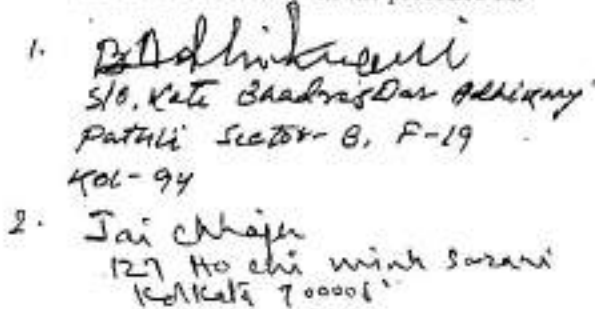 1. BAdhikari
S/o. Kati Bhadres Das Adhikary
Patuli Sector- B, F-19
Kol- 94
2. Jai Chhajer
127 Ho chi minh sarani
Kolkata 700008